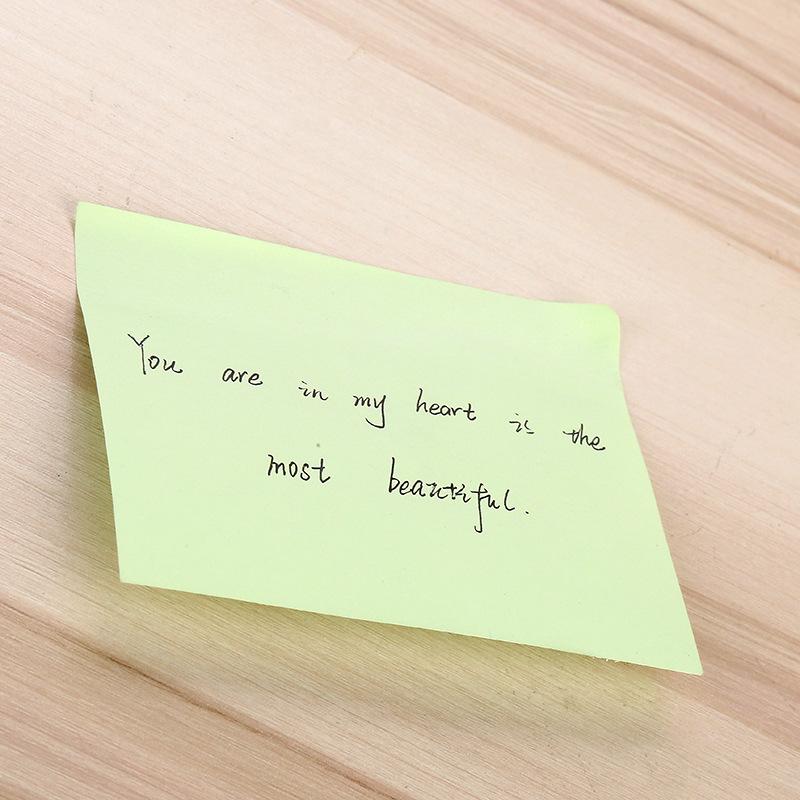 You are in my heart is the
most beautiful.